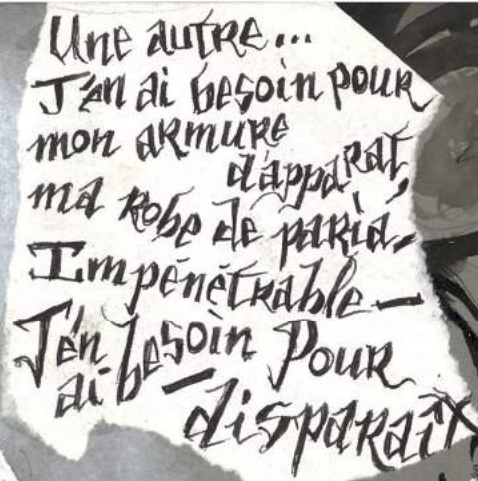 Une autre...
J'en ai besoin pour
mon armure
d'apparat,
ma robe de paria.
Impénétrable —
J'en
ai besoin pour
— disparaît